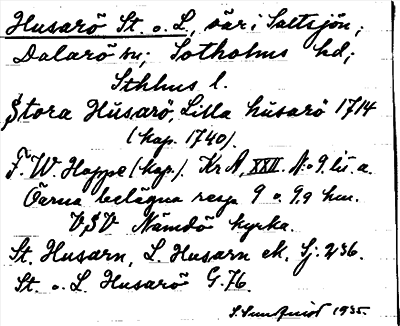 Husarö St. o. L., öar i Saltsjön;
Dalarö sn; Sotholms hd;
Sthlms l.
Stora Husarö, Lilla husarö 1714
(kop. 1740).
F. W. Hoppe (kop.). KrA, XXII. No 9. lit. a.
Öarna belägna resp. 9 o. 9,9 km.
VSV Nämdö kyrka.
St. Husarn, L. Husarn ek. Sj. 236.
St. o. L. Husarö G. 76.
S. Sundqvist 1935.